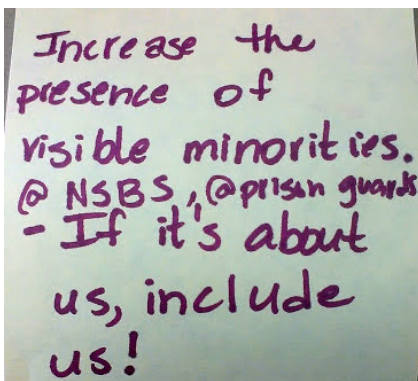 Increase the
presence of
visible minorities.
@ NSBS, @prison guards
- If it's about
us, include
us!